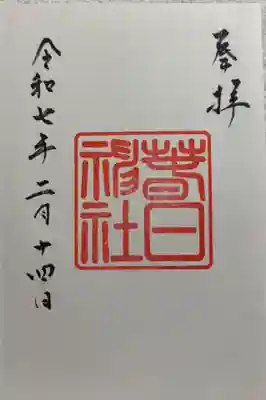 奉拝
春日
神社
令和七年 二月十四日